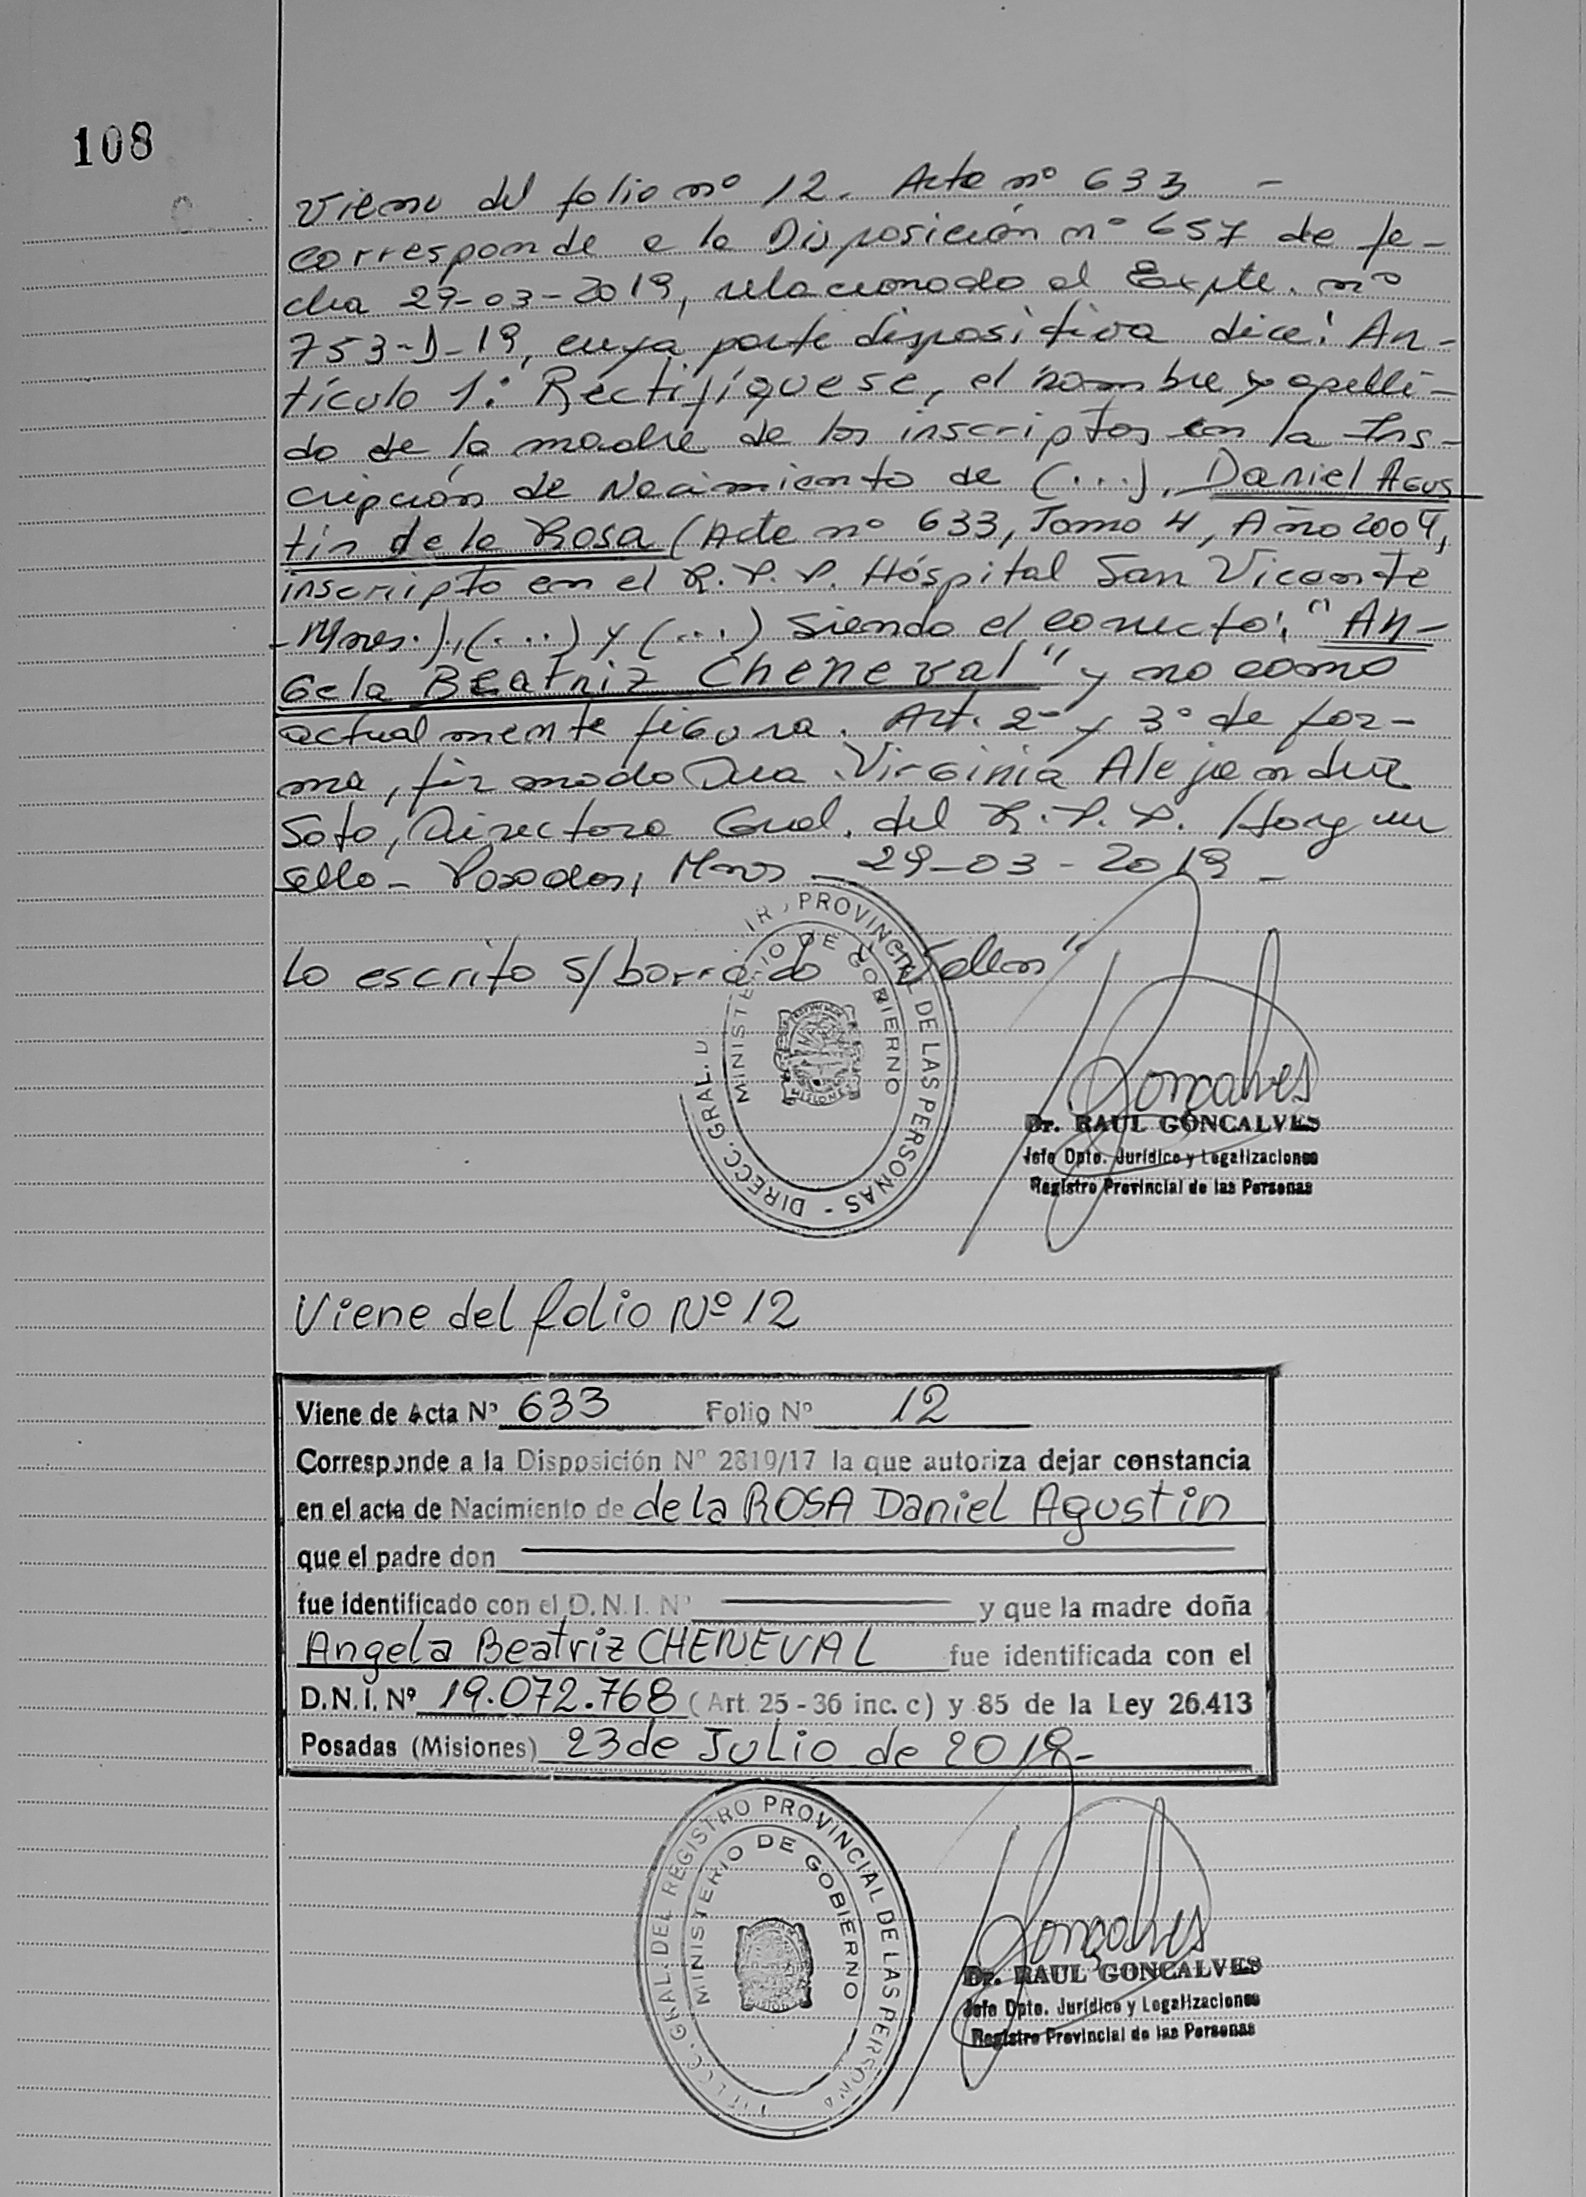 108
Viene del folio nº 12. Acta nº 633 -
corresponde a la Disposición nº 657 de fe-
cha 29-03-2019, relacionado al Expte. nº
753-D-19, cuya parte dispositiva dice: Ar-
tículo 1: Rectifíquese, el nombre y apelli-
do de la madre de los inscriptos en la Ins-
cripción de Nacimiento de (...), Daniel Agus
tin de la Rosa (Acta nº 633, Tomo 4, Año 2004,
inscripto en el R.P.P. Hospital San Vicente
-Mnes.), (...) y (...) siendo el correcto: "An-
gela Beatriz Cheneval" y no como
actualmente figura. Art. 2º y 3º de for-
ma, firmado Dra. Virginia Alejandra
Soto, Directora Gral. del R.P.P. Hay un
sello - Posadas, Mnes - 29-03-2019 -
Lo escrito s/borrado
DIRECC. GRAL. D PROVINCIAL DE LAS PERSONAS -
MINISTERIO DE GOBIERNO
MISIONES
Goncalves
Dr. RAUL GONCALVES
Jefe Dpto. Jurídico y Legalizaciones
Registro Provincial de las Personas
Viene del folio Nº 12
Viene de Acta Nº 633 Folio Nº 12
Corresponde a la Disposición Nº 2819/17 la que autoriza dejar constancia
en el acta de Nacimiento de de la ROSA Daniel Agustin
que el padre don
fue identificado con el D.N.I. Nº y que la madre doña
Angela Beatriz CHENEVAL fue identificada con el
D.N.I. Nº 19.072.768 (Art. 25 - 36 inc. c) y 85 de la Ley 26.413
Posadas (Misiones) 23 de JULio de 2019-
GRAL. DEL REGISTRO PROVINCIAL DE LAS PERSONA
MINISTERIO DE GOBIERNO
Gonçalves
Dr. RAUL GONCALVES
Jefe Dpto. Jurídico y Legalizaciones
Registro Provincial de las Personas